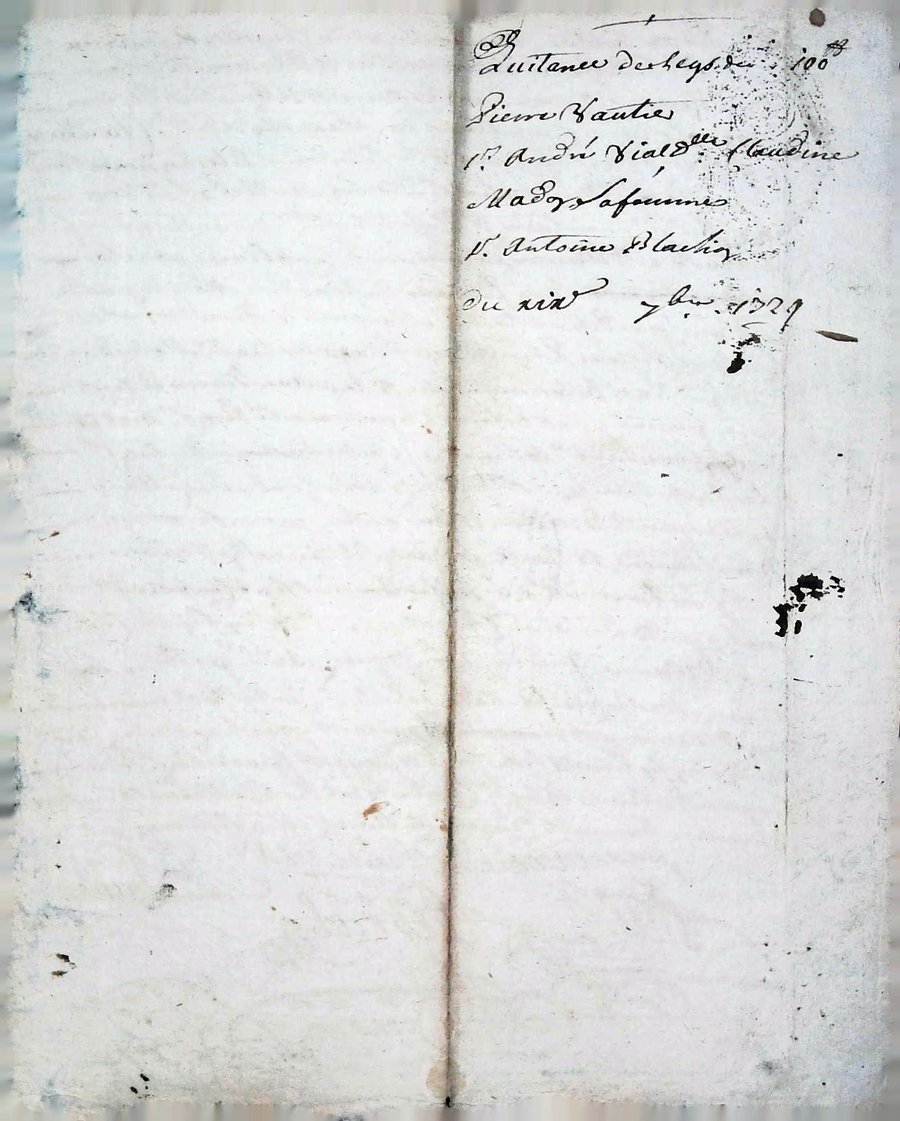 Quitance de Legs de 100 ₶
Pierre Vautie
pr. André Vial & dlle Claudine
Madoz sa femme
pr. Antoine Blache
du xixe 7bre 1729